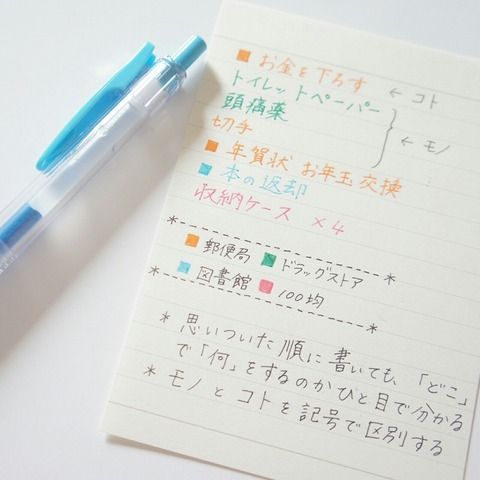 ■ お金を下ろす ← コト
トイレットペーパー
頭痛薬 ← モノ
切手
■ 年賀状 お年玉交換
■ 本の返却
収納ケース ×4
*--------------------*
■ 郵便局 ■ ドラッグストア
■ 図書館 ■ 100均
*--------------------*
* 思いついた順に書いても、「どこ」
で「何」をするのかひと目で分かる
* モノとコトを記号で区別する